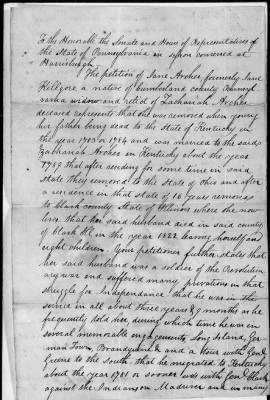 To the Honorable the Senate and House of Representatives of
the State of Pennsylvania in session convened at
Harrisburgh
The petition of Jane Archer formerly Jane
Killgore a native of Cumberland County
a widow and relict of Zachariah Archer
deceased represents that she was removed when young
her father being dead to the State of Kentucky in
the year 1783 or 1784 and was married to the said
Zachariah Archer in Kentucky about the year
that after residing for some time in said
State they removed to the State of Ohio and after
a residence in that State of 16 years removed
to Clark County State of Illinois where she now
lives that her said husband died in said county
of Clark Ill in the year 1822 leaving
eight children. Your petitioner further states that
her said husband was a soldier of the Revolution
ary war and suffered many privations in that
struggle for Independence that he was in the
service in all about three years & 9 months as he
frequently told her, during which time he was in
several memorable engagements Long Island, Ger
man Town, Brandywine & and a Hour with Genl.
Greene to the South, that he migrated to Kentucky
about the year 1781 or sooner was with Genl. Clark
against the Indians on and in many